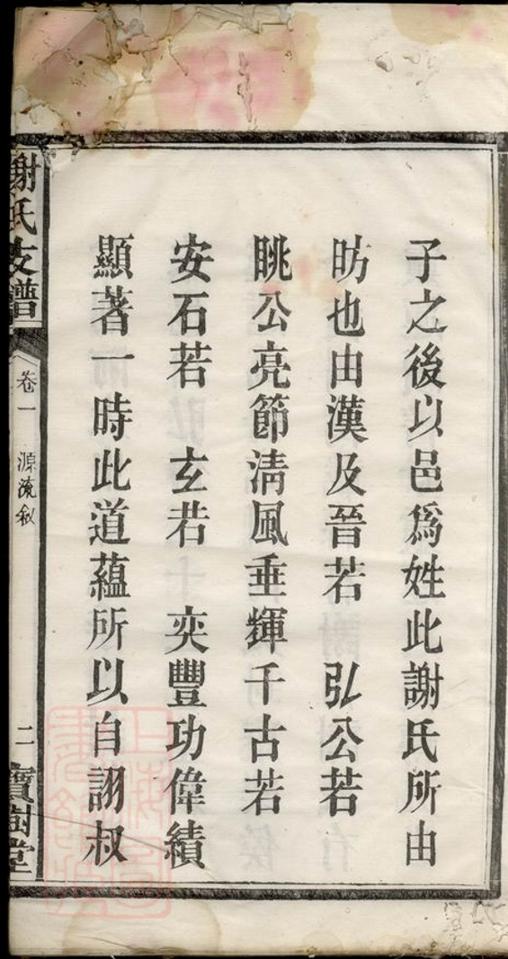 子之後以邑爲姓此謝氏所由
昉也由漢及晉若　弘公若
眺公亮節清風垂輝千古若
安石若　玄若　奕豐功偉績
顯著一時此道蘊所以自詡叔
謝氏支譜
卷一　源流敘
二
寶樹堂